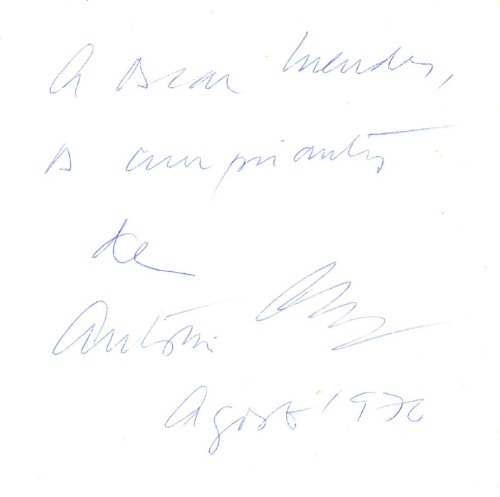 A Oscar Mendes,
os cumprimentos
de
António
Agosto 1976